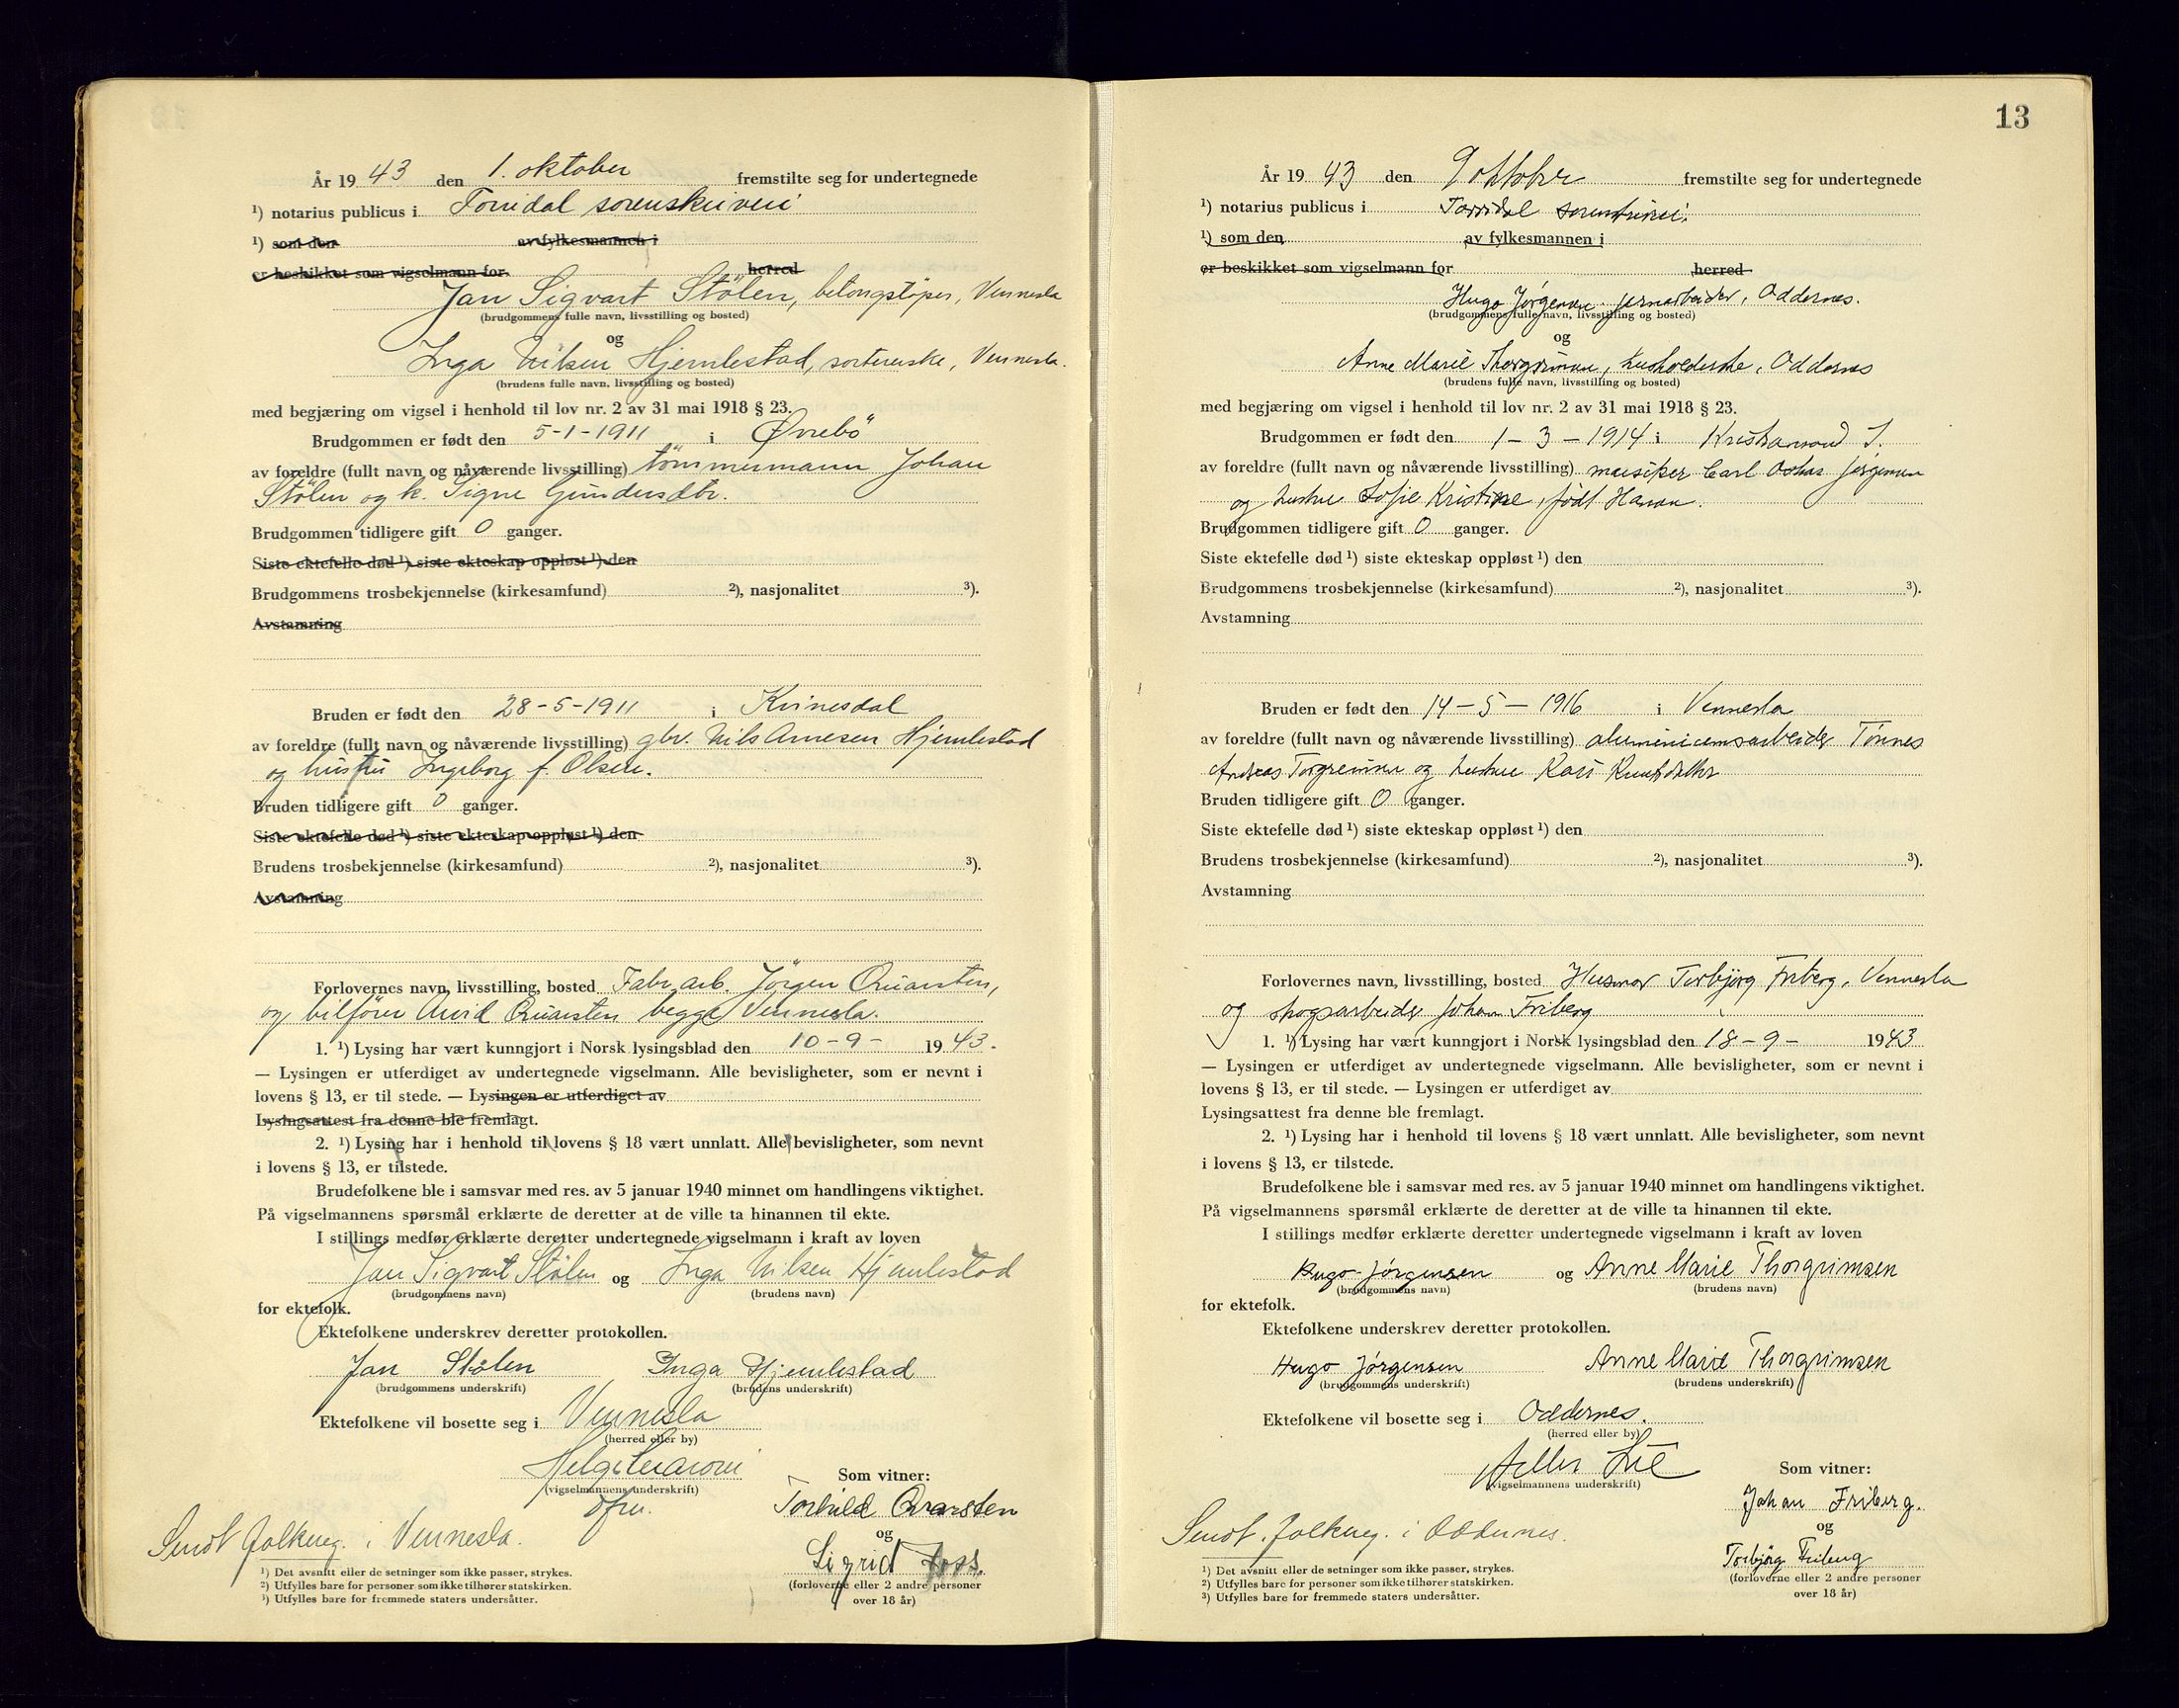 År 19 43 den 1. oktober fremstilte seg for undertegnede
¹) notarius publicus i Torridal sorenskriveri
¹) som den av fylkesmannen i
er beskikket som vigselmann for herred
Jan Sigvart Stölen, betongstöper, Vennesla
(brudgommens fulle navn, livsstilling og bosted)
og
Inga Nilsen Hjemlestad, sorterерske, Vennesla.
(brudens fulle navn, livsstilling og bosted)
med begjæring om vigsel i henhold til lov nr. 2 av 31 mai 1918 § 23.
Brudgommen er født den 5-1-1911 i Øvrebö
av foreldre (fullt navn og nåværende livsstilling) tömmermann Johan
Stölen og h. Signe Gundersdtr.
Brudgommen tidligere gift 0 ganger.
Siste ektefelle død ¹) siste ekteskap oppløst ¹) den
Brudgommens trosbekjennelse (kirkesamfund) ²), nasjonalitet ³).
Avstamning
Bruden er født den 28-5-1911 i Kvinesdal
av foreldre (fullt navn og nåværende livsstilling) gbr. Nils Arnesen Hjemlestad
og hustru Ingeborg f. Olsen.
Bruden tidligere gift 0 ganger.
Siste ektefelle død ¹) siste ekteskap oppløst ¹) den
Brudens trosbekjennelse (kirkesamfund) ²), nasjonalitet ³).
Avstamning
Forlovernes navn, livsstilling, bosted Fabr.arb. Jörgen Qvarsten,
og bilförer Arvid Qvarsten begge Vennesla.
1. ¹) Lysing har vært kunngjort i Norsk lysingsblad den 10-9- 19 43.
— Lysingen er utferdiget av undertegnede vigselmann. Alle bevisligheter, som er nevnt i
lovens § 13, er til stede. — Lysingen er utferdiget av
Lysingsattest fra denne ble fremlagt.
2. ¹) Lysing har i henhold til lovens § 18 vært unnlatt. Alle bevisligheter, som nevnt
i lovens § 13, er tilstede.
Brudefolkene ble i samsvar med res. av 5 januar 1940 minnet om handlingens viktighet.
På vigselmannens spørsmål erklærte de deretter at de ville ta hinannen til ekte.
I stillings medfør erklærte deretter undertegnede vigselmann i kraft av loven
Jan Sigvart Stölen og Inga Nilsen Hjemlestad
(brudgommens navn) (brudens navn)
for ektefolk.
Ektefolkene underskrev deretter protokollen.
Jan Stölen Inga Hjemlestad
(brudgommens underskrift) (brudens underskrift)
Ektefolkene vil bosette seg i Vennesla
(herred eller by)
(vigselmannens underskrift)
Som vitner:
Torhild Qvarsten
og
Sigrid Foss.
(forloverne eller 2 andre personer
over 18 år)
Sendt folkereg. i Vennesla.
¹) Det avsnitt eller de setninger som ikke passer, strykes.
²) Utfylles bare for personer som ikke tilhører statskirken.
³) Utfylles bare for fremmede staters undersåtter.
13
År 19 43 den 9 oktober fremstilte seg for undertegnede
¹) notarius publicus i Torridal sorenskriveri.
¹) som den av fylkesmannen i
er beskikket som vigselmann for herred
Hugo Jørgensen, jernarbeider, Oddernes.
(brudgommens fulle navn, livsstilling og bosted)
og
Anne Marie Thorgrimsen, husholderske, Oddernes
(brudens fulle navn, livsstilling og bosted)
med begjæring om vigsel i henhold til lov nr. 2 av 31 mai 1918 § 23.
Brudgommen er født den 1-3-1914 i Kristiansand S.
av foreldre (fullt navn og nåværende livsstilling) musiker Carl Oskar Jørgensen
og hustru Sofie Kristine, født Hansen.
Brudgommen tidligere gift 0 ganger.
Siste ektefelle død ¹) siste ekteskap oppløst ¹) den
Brudgommens trosbekjennelse (kirkesamfund) ²), nasjonalitet ³).
Avstamning
Bruden er født den 14-5-1916 i Vennesla
av foreldre (fullt navn og nåværende livsstilling) aluminiumsarbeider Tønnes
Andreas Torgrimsen og hustru Kari Knutsdatter
Bruden tidligere gift 0 ganger.
Siste ektefelle død ¹) siste ekteskap oppløst ¹) den
Brudens trosbekjennelse (kirkesamfund) ²), nasjonalitet ³).
Avstamning
Forlovernes navn, livsstilling, bosted Husmor Torbjørg Friberg, Vennesla
og skogsarbeider Johan Friberg
1. ¹) Lysing har vært kunngjort i Norsk lysingsblad den 18-9- 1943
— Lysingen er utferdiget av undertegnede vigselmann. Alle bevisligheter, som er nevnt i
lovens § 13, er til stede. — Lysingen er utferdiget av
Lysingsattest fra denne ble fremlagt.
2. ¹) Lysing har i henhold til lovens § 18 vært unnlatt. Alle bevisligheter, som nevnt
i lovens § 13, er tilstede.
Brudefolkene ble i samsvar med res. av 5 januar 1940 minnet om handlingens viktighet.
På vigselmannens spørsmål erklærte de deretter at de ville ta hinannen til ekte.
I stillings medfør erklærte deretter undertegnede vigselmann i kraft av loven
Hugo Jørgensen og Anne Marie Thorgrimsen
(brudgommens navn) (brudens navn)
for ektefolk.
Ektefolkene underskrev deretter protokollen.
Hugo Jørgensen Anne Marie Thorgrimsen
(brudgommens underskrift) (brudens underskrift)
Ektefolkene vil bosette seg i Oddernes.
(herred eller by)
Lie
(vigselmannens underskrift)
Som vitner:
Johan Friberg.
og
Torbjørg Friberg
(forloverne eller 2 andre personer
over 18 år)
Sendt. folkereg. i Oddernes.
¹) Det avsnitt eller de setninger som ikke passer, strykes.
²) Utfylles bare for personer som ikke tilhører statskirken.
³) Utfylles bare for fremmede staters undersåtter.